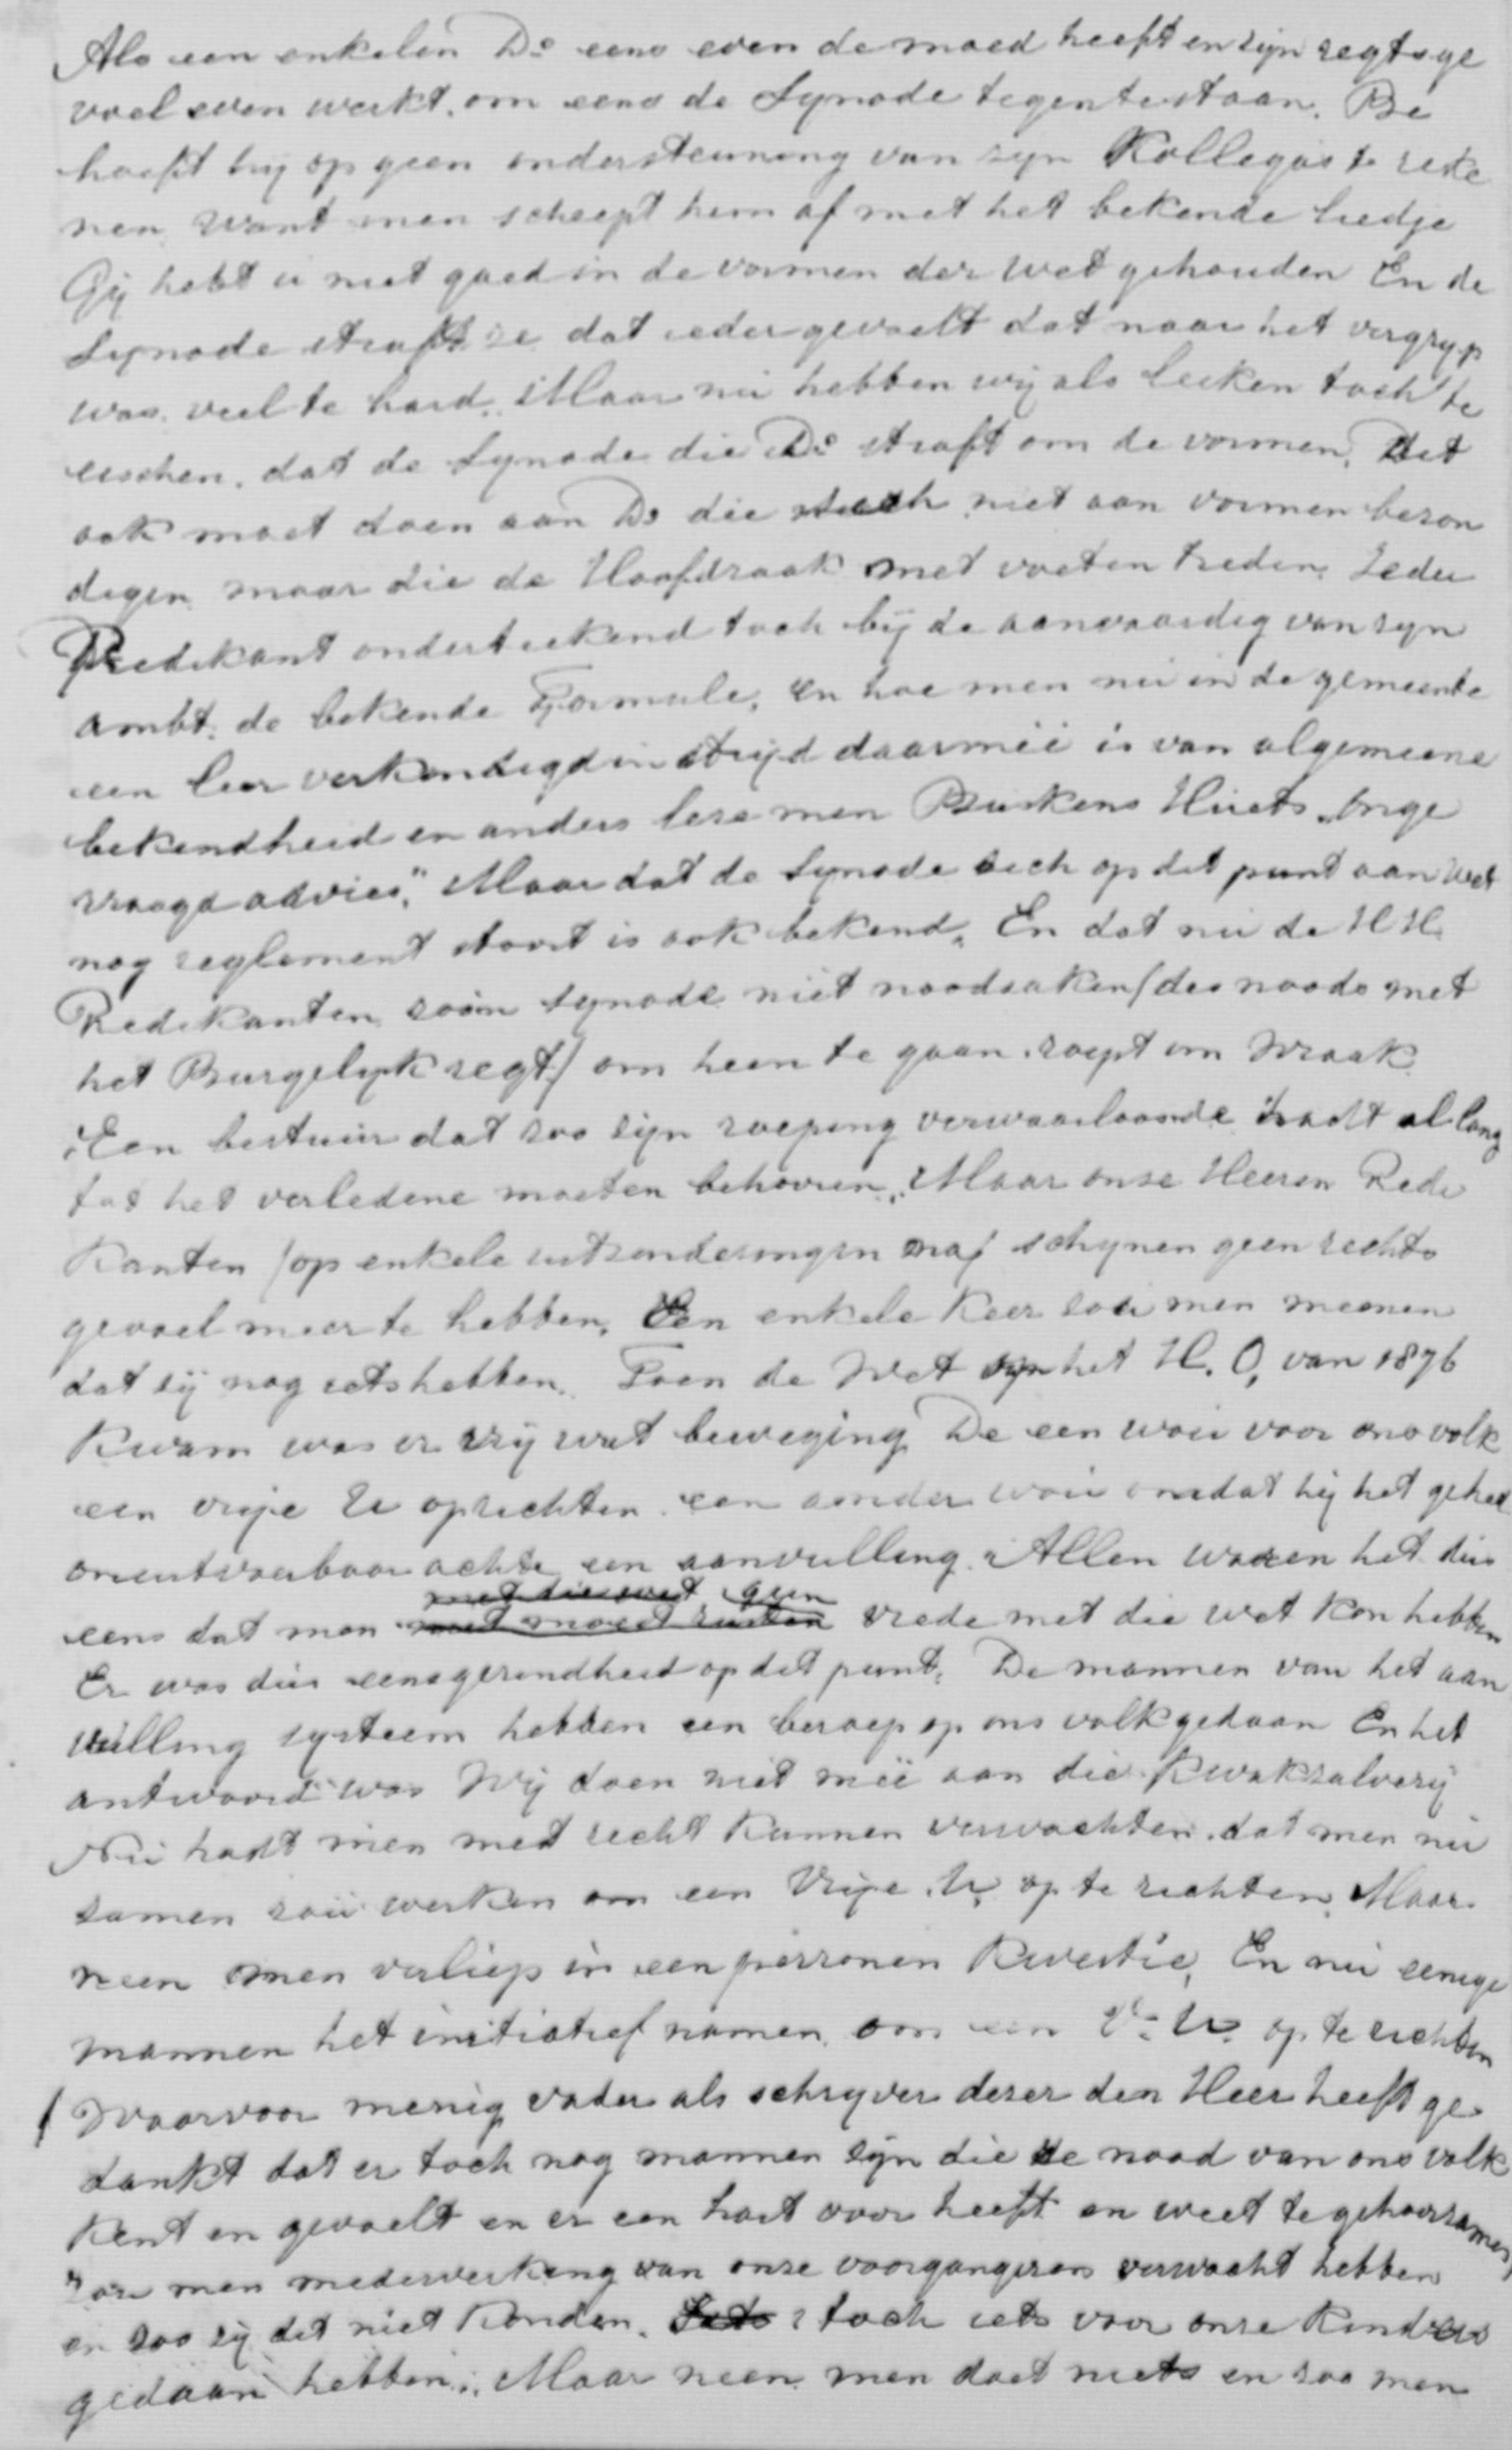 Als een enkelen Ds eens even de moed heeft en zijn regtsge
voel even werkt. om eens de Synode tegentestaan. Be
hoeft hij op geen ondersteuning van zyn Kollegas te reke
nen want men scheept hem af met het bekende liedje
Gij hebt u niet goed in de vormen der wet gehouden En de
Synode straft ze dat ieder gevoelt dat naar het vergryp
was veel te hard. Maar nu hebben wij als leeken toch te
eischen. dat de Synode die Ds straft om de vormen. Dit
ook moet doen aan Ds die niet aan vormen bezon
digen maar die de Hoofdzaak met voeten treden. Ieder
Predikant onderteekend toch bij de aanvaardig van zyn
ambt. de bekende Formule, en hoe men nu in de gemeente
een leer verkondigd in strijd daarmeê is van algemeene
bekendheid en anders leze men Buskens Huets „Onge
vraagd advies". Maar dat de Synode zich op dit punt aan wet
nog reglement stoort is ook bekend. En dat nu de H H
Predikanten zoo'n Synode niet noodzaken (des noods met
het Burgelyk regt) om heen te gaan. roept om wraak
Een bestuur dat zoo zijn roeping verwaarloosde hadt al lang
tot het verledene moeten behooren. Maar onze Heeren Predi
kanten (op enkele uitzonderingen na) schynen geen rechts
gevoel meer te hebben. Een enkele keer zou men meenen
dat zij nog iets hebben. Toen de Wet op het H. O. van 1876
kwam was er vrij wat beweging De een wou voor ons volk
een vrije U oprichten. een ander wou omdat hij het geheel
onuitvoerbaar achte een aanvulling. Allen waren het dus
eens dat men met die wet geen vrede met die wet kon hebben
Er was dus eensgezindheid op dit punt. De mannen van het aan
vulling systeem hebben een beroep op ons volk gedaan En het
antwoord was Wij doen niet meê aan die kwakzalverij
Nu hadt men met recht kunnen verwachten. dat men nu
samen zou werken om een Vrije U. op te richten. Maar
neen men verliep in een personen kwestie. En nu eenige
mannen het initiatief namen. om een V. U. op te richten
( Waarvoor menig vader als schryver dezer den Heer heeft ge
dankt dat er toch nog mannen zijn die de nood van ons volk
kent en gevoelt en er een hart voor heeft en weet te gehoorzamen)
zou men medewerking van onze voorgangers verwacht hebben
en zoo zij dit niet konden. toch iets voor onze kinders
gedaan hebben. Maar neen men doet niets en zoo men